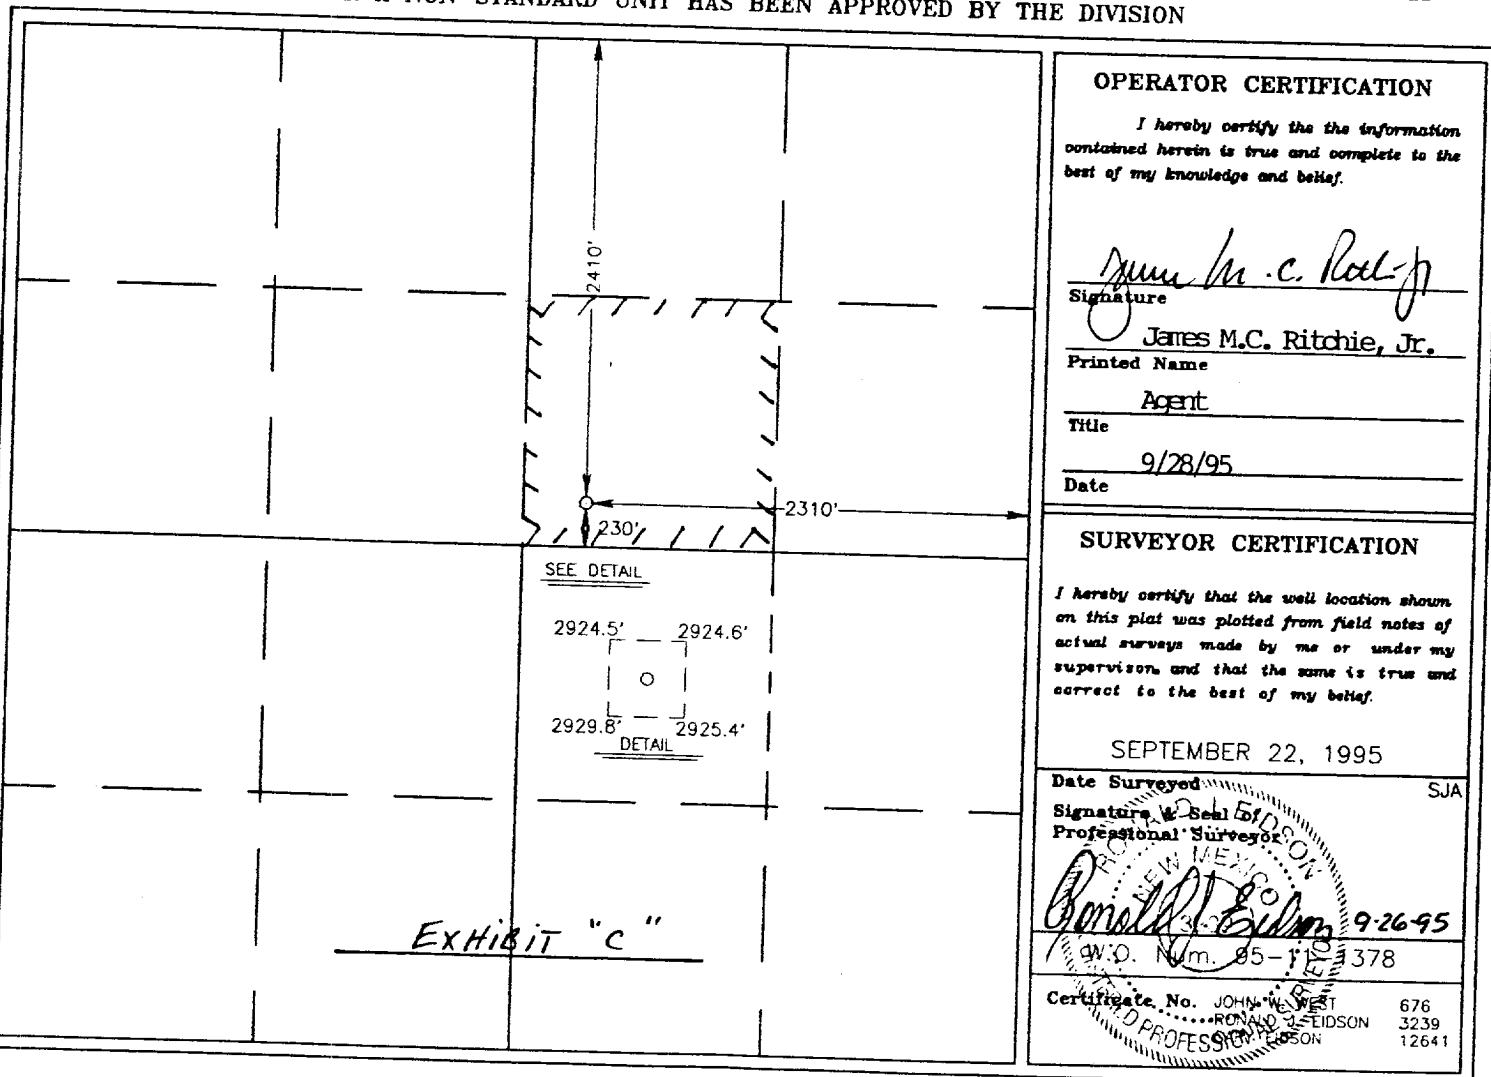 NON STANDARD UNIT HAS BEEN APPROVED BY THE DIVISION
2410'
2310'
230'
SEE DETAIL
2924.5' 2924.6'
2929.8' 2925.4'
DETAIL
EXHIBIT "C"
OPERATOR CERTIFICATION
I hereby certify the the information
contained herein is true and complete to the
best of my knowledge and belief.
Signature
James M.C. Ritchie, Jr.
Printed Name
Agent
Title
9/28/95
Date
SURVEYOR CERTIFICATION
I hereby certify that the well location shown
on this plat was plotted from field notes of
actual surveys made by me or under my
supervison, and that the same is true and
correct to the best of my belief.
SEPTEMBER 22, 1995
Date Surveyed SJA
Signature & Seal of
Professional Surveyor
RONALD J. EIDSON
NEW MEXICO
Ronald J. Eidson 9-26-95
W.O. Num. 95-11-1378
Certificate No. JOHN W. WEST 676
RONALD J. EIDSON 3239
EIDSON 12641
PROFESSIONAL SURVEYOR